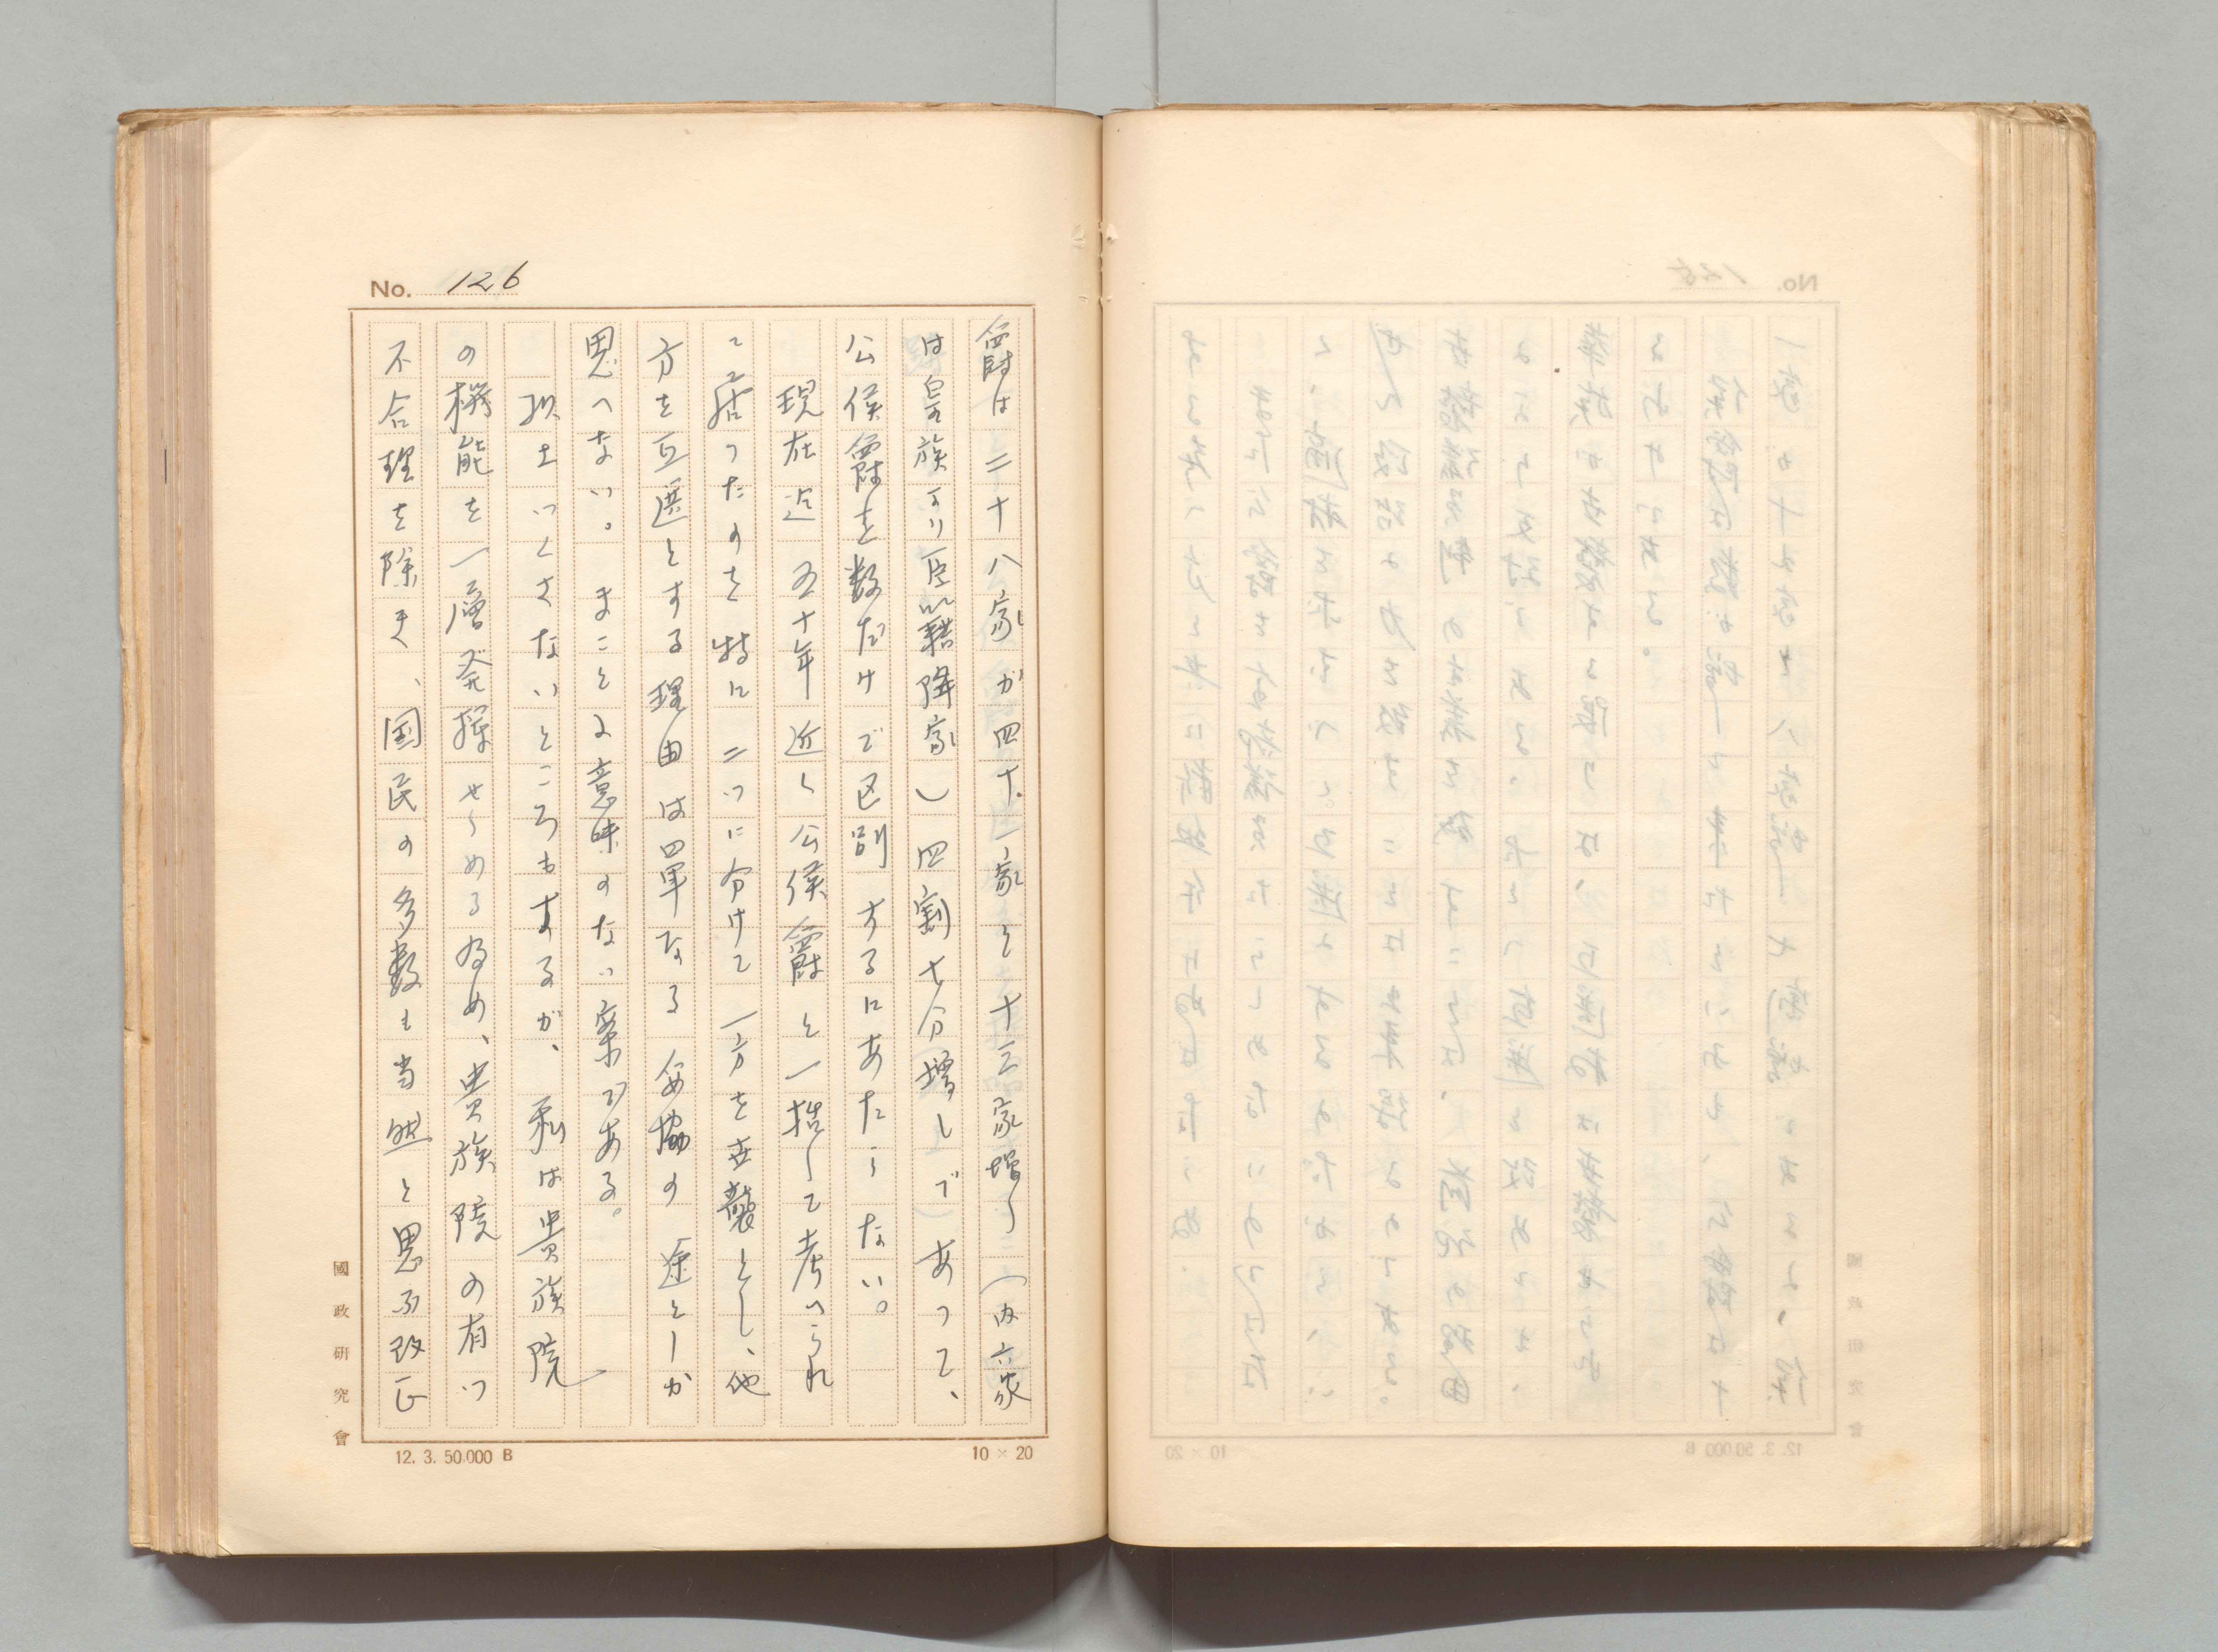 No. 126
爵は二十八家が四十一家と十三家増し（内六家
は皇族より臣籍降家）四割七分増しであつて、
公侯爵を数だけで区別するにあたらない。
現在迄五十年近く公侯爵と一括して考へられ
て居つたのを特に二つに分けて一方を世襲とし、他
方を互選とする理由は単なる妥協の途としか
思へない。まことに意味のない案である。
扨まつくさないところもあるが、私は貴族院
の機能を一層発揮せしめる為め、貴族院の有つ
不合理を除き、国民の多数も当然と思ふ改正
國政研究會
12. 3. 50,000 B
10 × 20